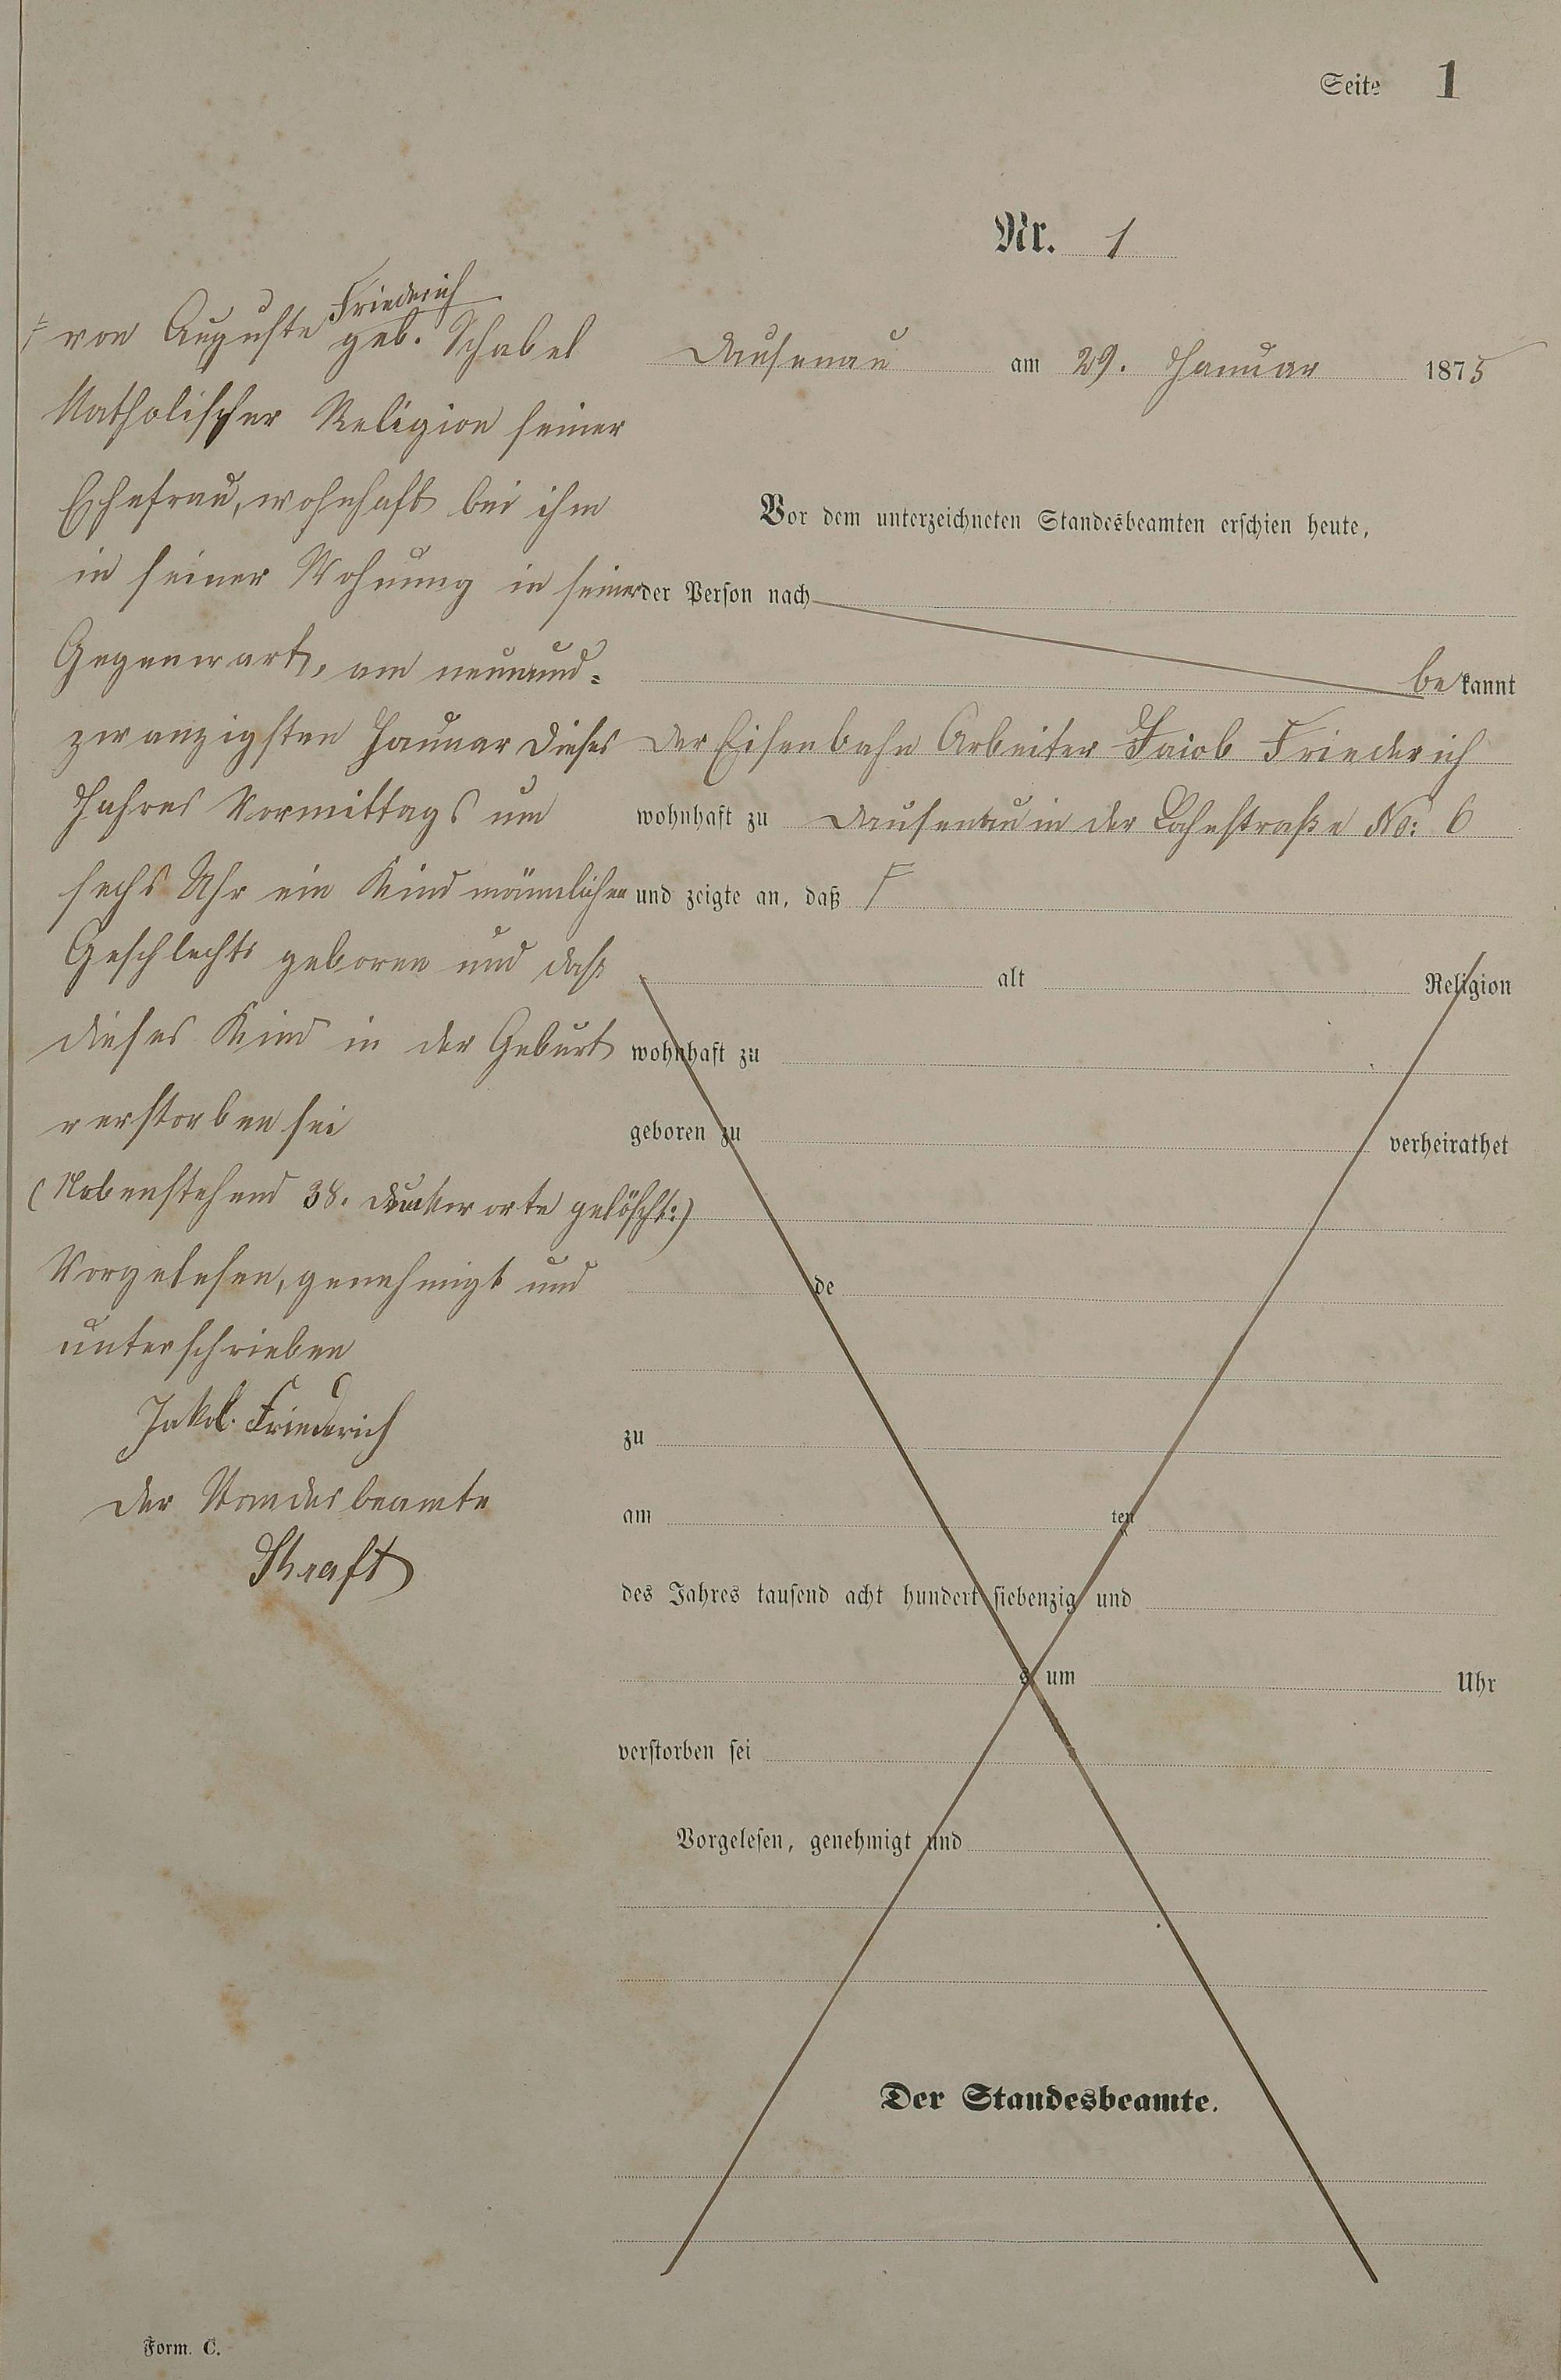 Seite 1
Nr. 1
Dausenau am 29. Januar 1875
Vor dem unterzeichneten Standesbeamten erschien heute,
der Person nach
be kannt
der Eisenbahn Arbeiter Jacob Friederich
wohnhaft zu Dausenau in der Lahnstraße No: 6
und zeigte an, daß F
alt Religion
wohnhaft zu
geboren zu verheirathet
de
zu
am ten
des Jahres tausend acht hundert siebenzig und
s um Uhr
verstorben sei
Vorgelesen, genehmigt und
Der Standesbeamte.
Friederich
F von Auguste geb. Schabel
Katholischer Religion seiner
Ehefrau, wohnhaft bei ihm
in seiner Wohnung in seiner
Gegenwart, am neunund-
zwanzigsten Januar dieses
Jahres Vormittags um
sechs Uhr ein Kind männlichen
Geschlechts geboren und daß
dieses Kind in der Geburt
verstorben sei
(Nebenstehend 38. Druckworte gelöscht:)
Vorgelesen, genehmigt und
unterschrieben
Jakob Friederich
Der Standesbeamte
Form. C.